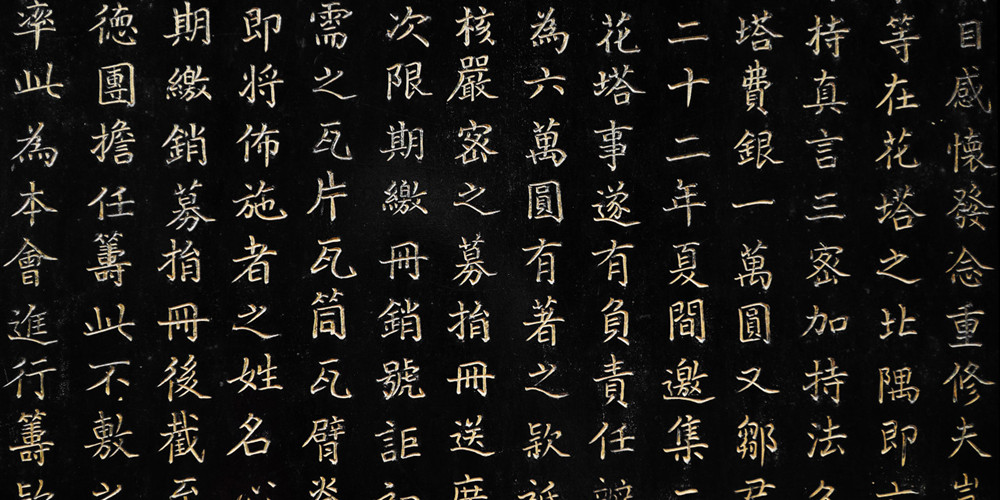 目感懷發念重修夫
等在花塔之北隅即
持真言三密加持法
塔費銀一萬圓又鄒
二十二年夏間邀集
花塔事遂有負責任
為六萬圓有著之款
核嚴密之募捐冊送
次限期繳冊銷號詎
需之瓦片瓦筒瓦臂
即將佈施者之姓名
期繳銷募捐冊後截
德團擔任籌此不敷
率此為本會進行籌